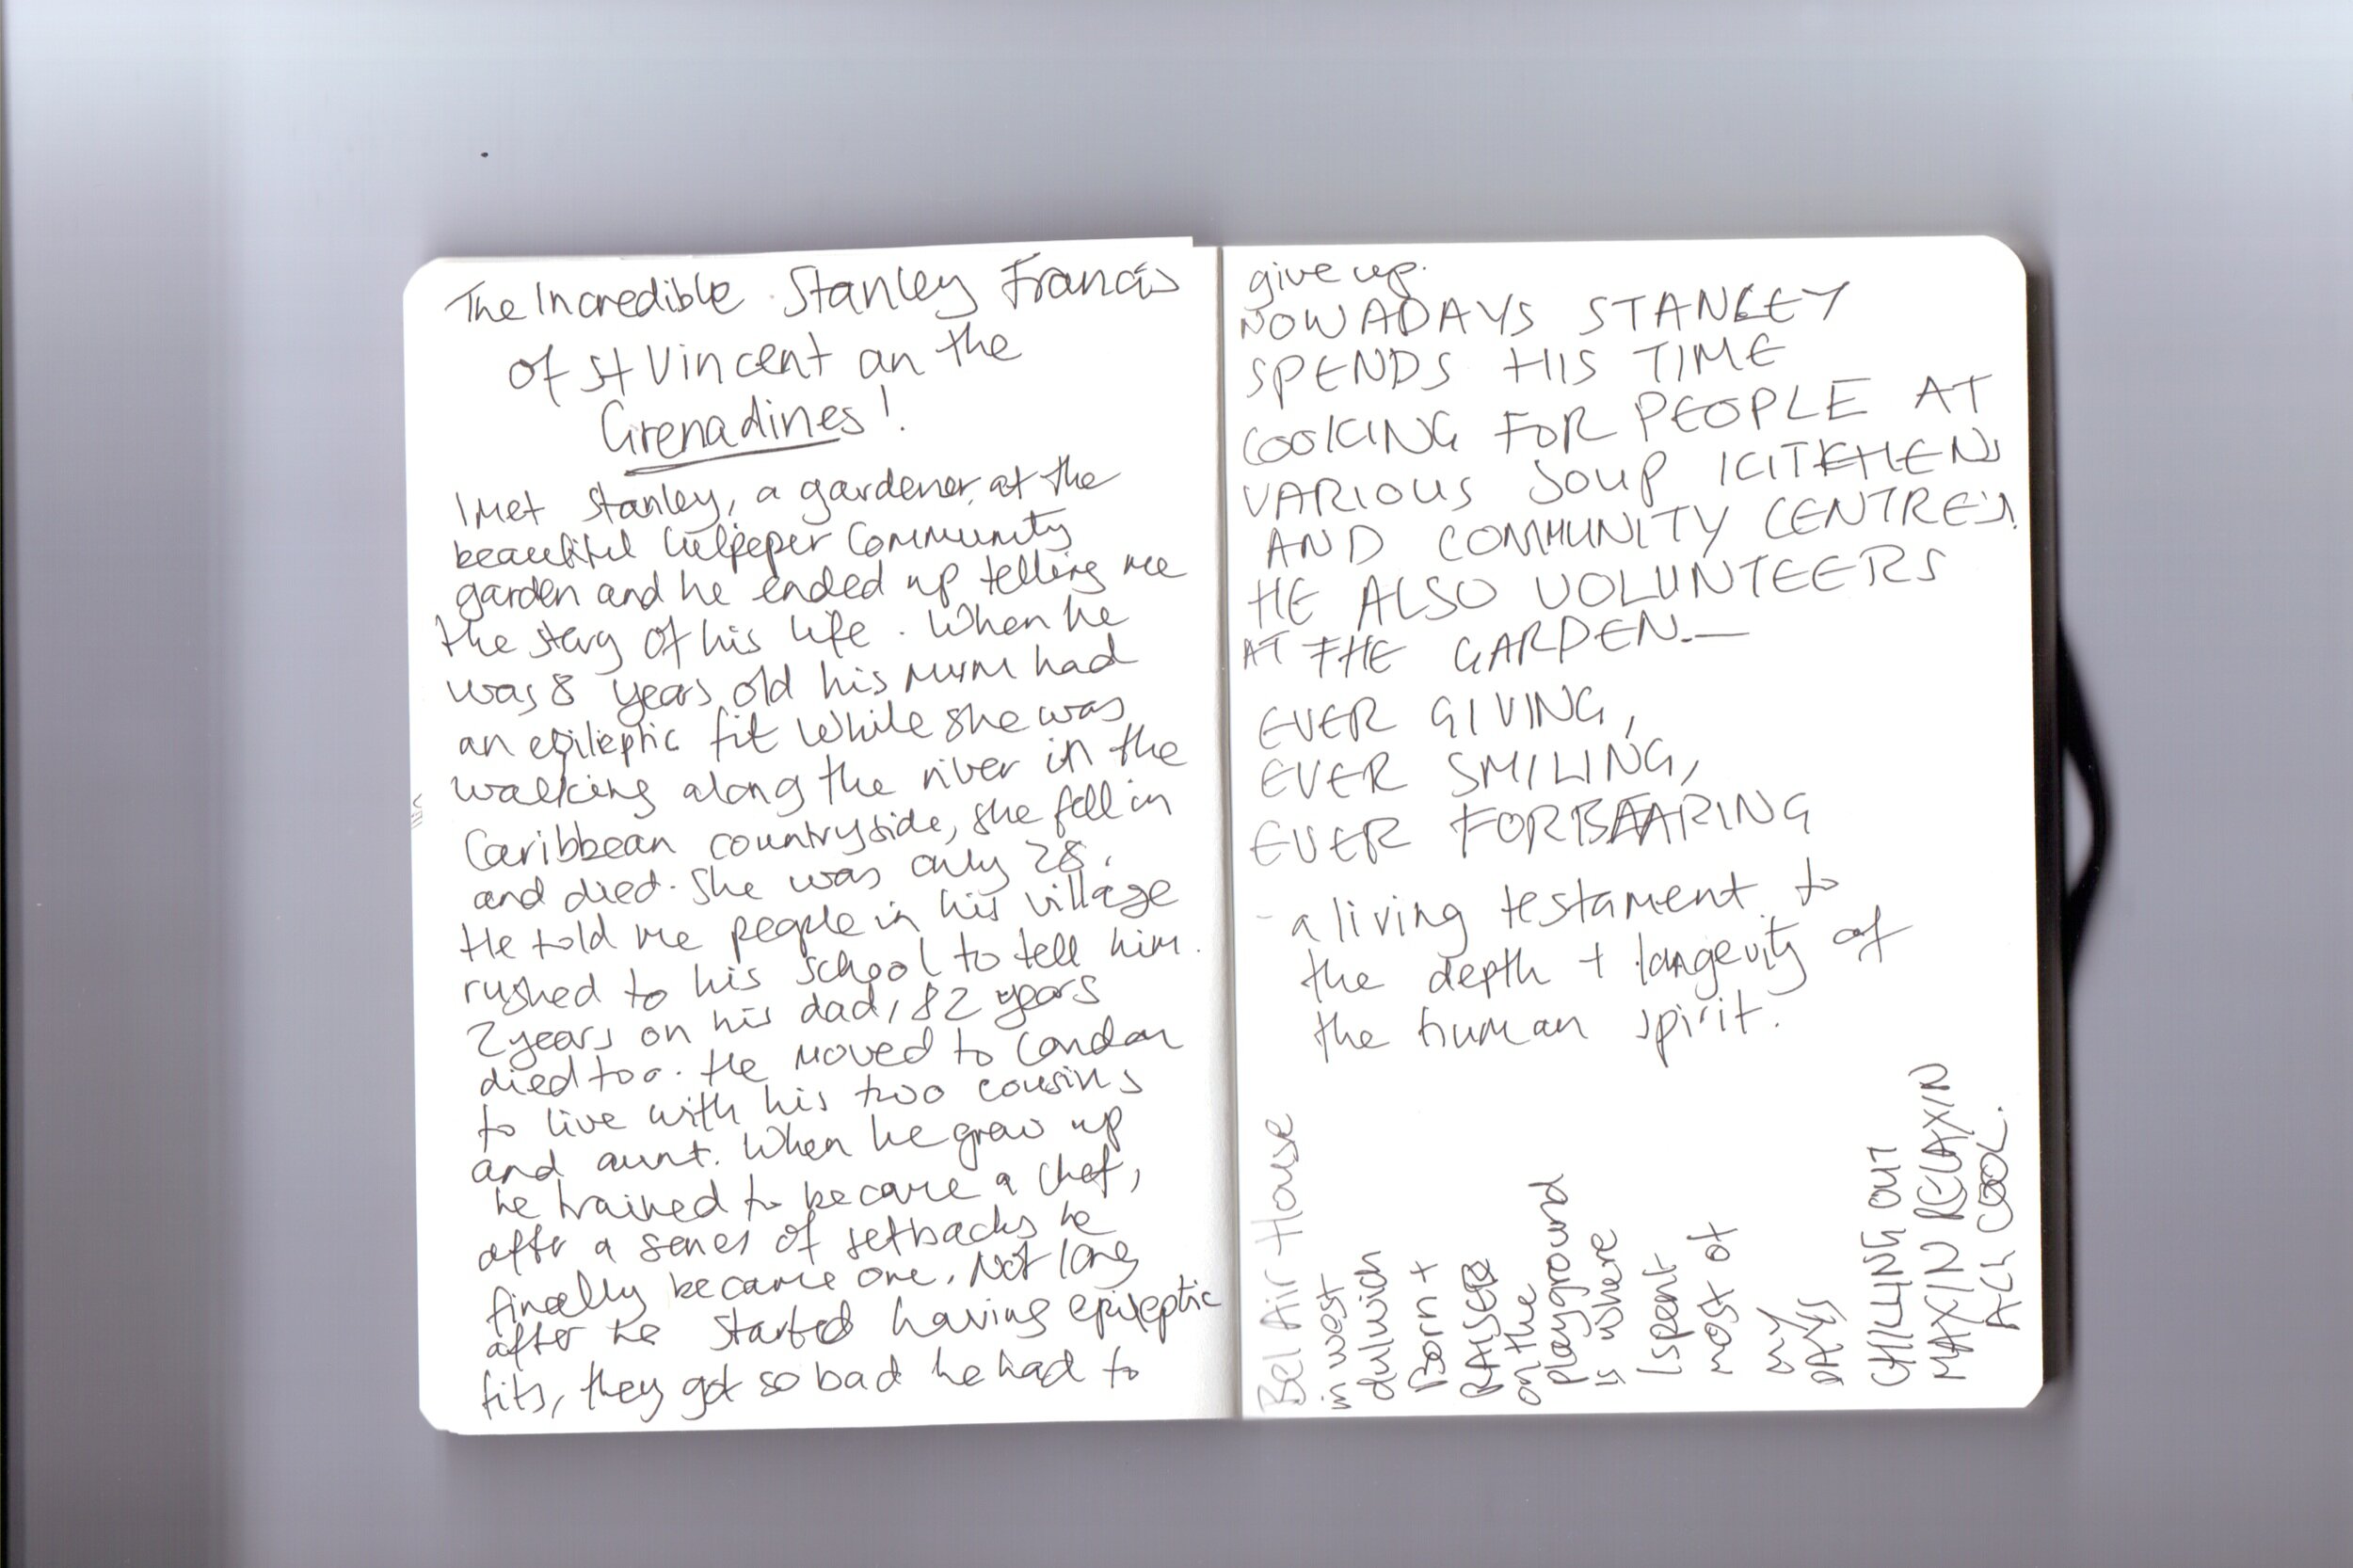 The Incredible Stanley Francis
of St Vincent an the
Grenadines!
I met Stanley, a gardener at the
beautiful Culpeper Community
garden and he ended up telling me
the story of his life. When he
was 8 years old his mum had
an epileptic fit while she was
walking along the river in the
Caribbean countryside, she fell in
and died. She was only 28.
He told me people in his village
rushed to his school to tell him.
2 years on his dad, 82 years
died too. He moved to London
to live with his two cousins
and aunt. When he grew up
he trained to become a chef,
after a series of setbacks he
finally became one. Not long
after he started having epileptic
fits, they got so bad he had to
give up.
NOWADAYS STANLEY
SPENDS HIS TIME
COOKING FOR PEOPLE AT
VARIOUS SOUP KITCHENS
AND COMMUNITY CENTRES.
HE ALSO VOLUNTEERS
AT THE GARDEN.—
EVER GIVING,
EVER SMILING,
EVER FORBEARING
- a living testament to
the depth + longevity of
the human spirit.
Bel Air House
in west
dulwich
Born +
RAISED
on the
playground
is where
I spent
most of
my
DAYS
CHILLING OUT
MAXIN RELAXIN
ALL COOL.